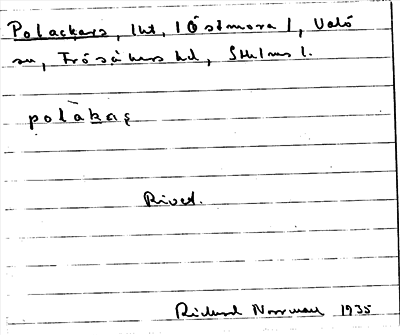 Polackars, lht, i Östmora l, Valö
sn, Frösåkers hd, Sthlms l.
polàkaș
Rivet.
Rickard Norrman 1935